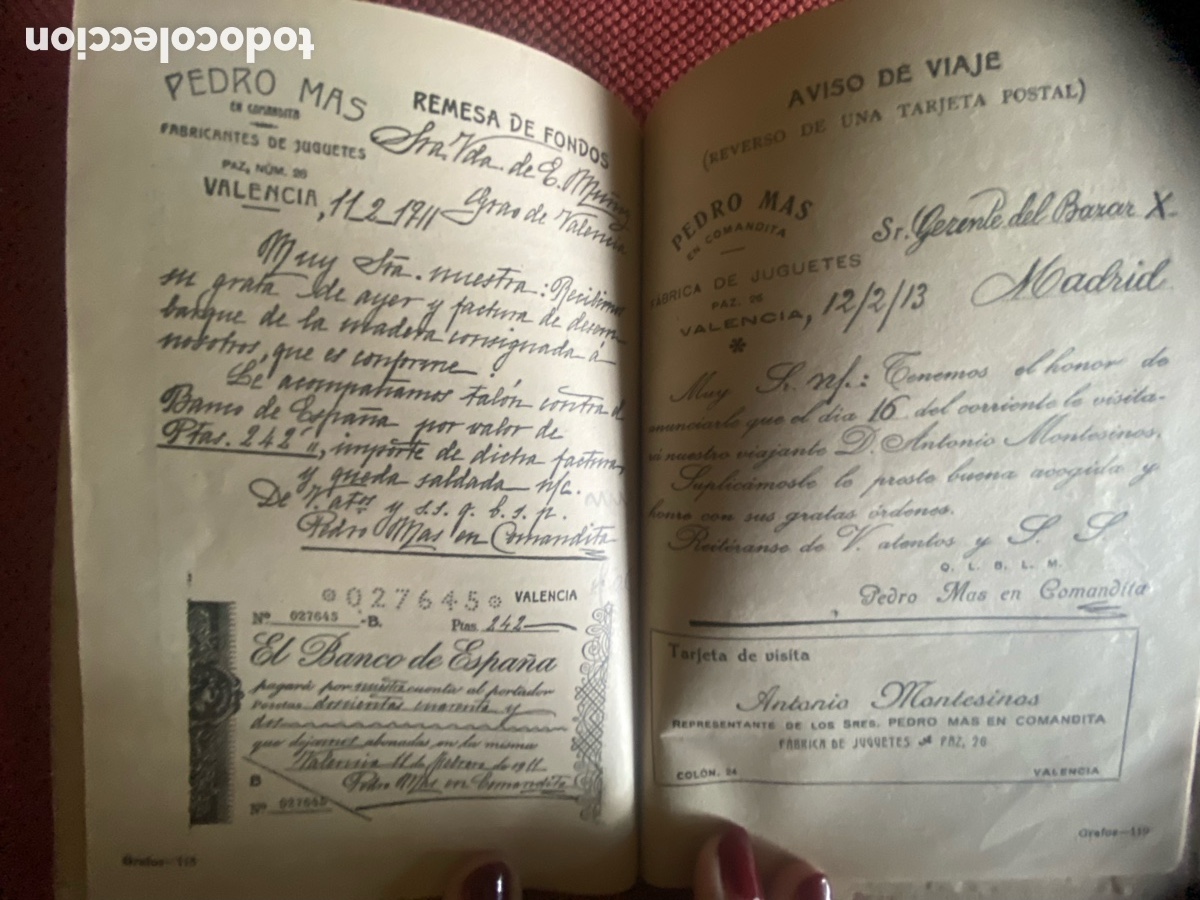 todocoleccion
PEDRO MAS
EN COMANDITA
FABRICANTES DE JUGUETES
PAZ, NÚM. 26
VALENCIA, 11 2 1911
REMESA DE FONDOS
Sra. Vda. de E. Muñoz
Grao de Valencia
Muy Sra. nuestra: Recibimos
su grata de ayer y factura de desem-
barque de la madera consignada á
nosotros, que es conforme.
Le acompañamos talón contra el
Banco de España por valor de
Ptas. 242'», importe de dicha factura,
y queda saldada n/c.
De V. atos y s.s. q. b. s. p.
Pedro Mas en Comandita
027645 VALENCIA
Nº 027645 -B. Ptas. 242
El Banco de España
pagará por nuestra cuenta al portador
pesetas doscientas cuarenta y
dos
que dejamos abonadas en la misma
Valencia 11 de Febrero de 1911
B Pedro Mas en Comandita
Nº 027645
Grafos—118
AVISO DE VIAJE
(REVERSO DE UNA TARJETA POSTAL)
PEDRO MAS
EN COMANDITA
FÁBRICA DE JUGUETES
PAZ, 26
VALENCIA, 12/2/13
Sr. Gerente del Bazar X.
Madrid
Muy Sr. n/.: Tenemos el honor de
anunciarle que el día 16 del corriente le visita-
rá nuestro viajante D. Antonio Montesinos.
Suplicámosle le preste buena acogida y
honre con sus gratas órdenes.
Reitéranse de V. atentos y S. S.
Q. L. B. L. M.
Pedro Mas en Comandita
Tarjeta de visita
Antonio Montesinos
REPRESENTANTE DE LOS SRES. PEDRO MAS EN COMANDITA
FÁBRICA DE JUGUETES PAZ, 26
COLÓN. 24 VALENCIA
Grafos—119